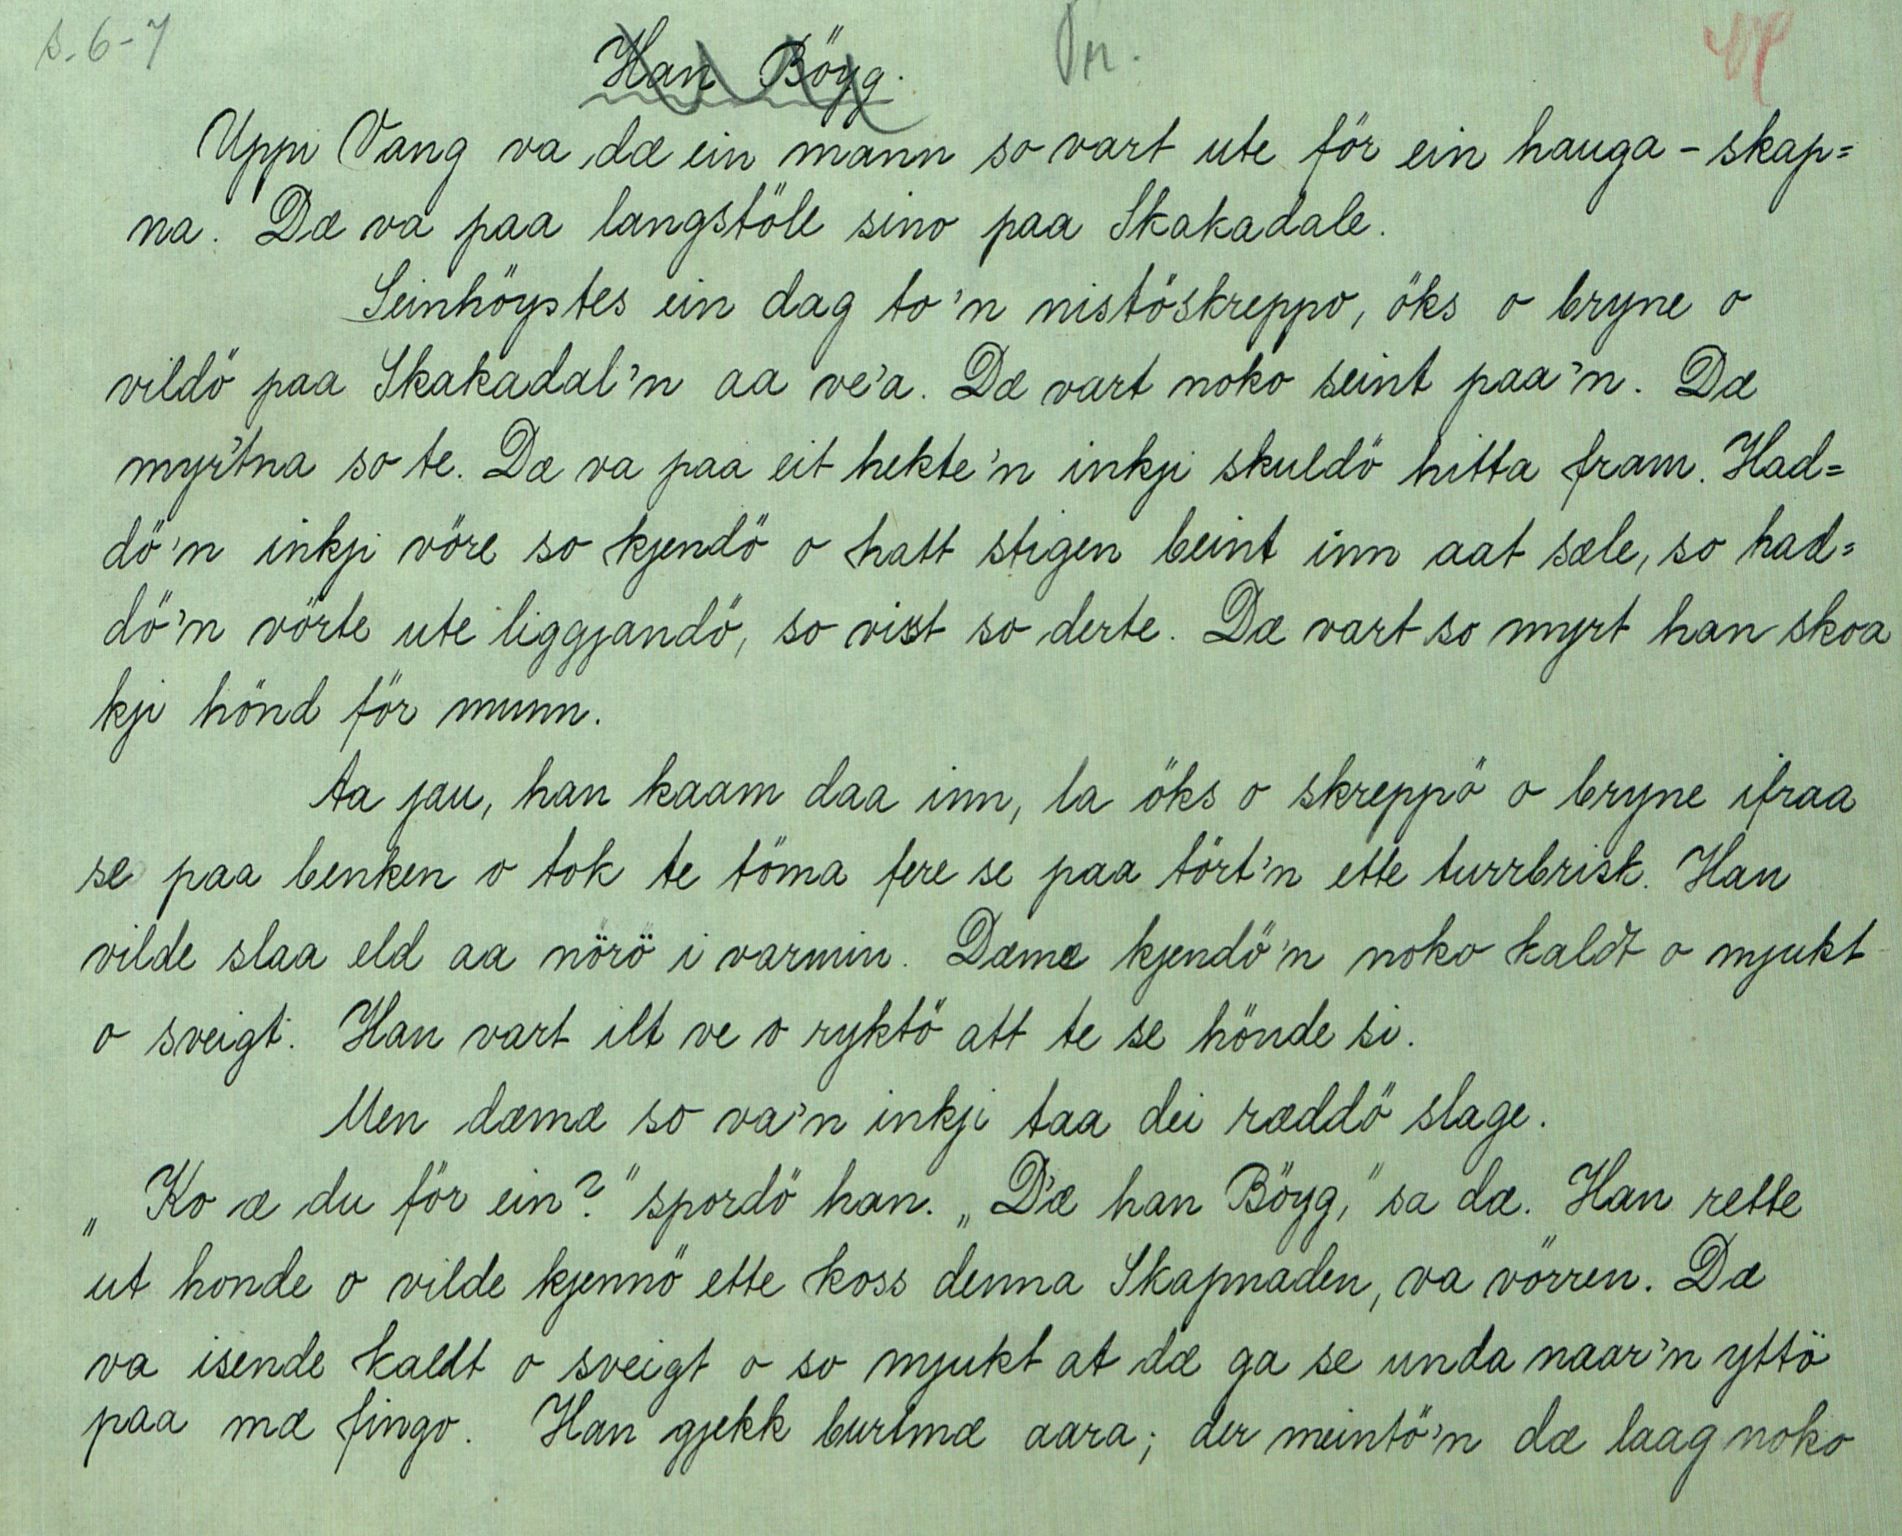 s. 6-7
Han Böyg.
Uppi Vang va dæ ein mann so vart ute för ein hauga-skap=
na. Dæ va paa langstöle sino paa Skakadale.
Seinhöystes ein dag to'n nistöskreppo, öks o bryne o
vildö paa Skakadal'n aa ve'a. Dæ vart noko seint paa'n. Dæ
myrtna so te. Dæ va paa eit hekte'n inkji skuldö hitta fram. Had=
dö'n inkji vöre so kjendö o hatt stigen beint inn aat sæle, so had=
dö'n vörte ute liggjandö, so vist so derte. Dæ vart so myrt han skoa
kji hönd för munn.
Aa jau, han kaam daa inn, la öks o skreppö o bryne ifraa
se paa benken o tok te töma fere se paa tört'n ette turrbrisk. Han
vilde slaa eld aa nörö i varmin. Dæmæ kjendö'n noko kaldt o mjukt
o sveigt. Han vart ilt ve o ryktö att te se hönde si.
Men dæmæ so va'n inkji taa dei ræddö slage.
„Ko æ du för ein?" spordö han. „D'æ han Böyg," sa dæ. Han rette
ut honde o vilde kjennö ette koss denna Skapnaden, va vörren. Dæ
va isende kaldt o sveigt o so mjukt at dæ ga se unda naar'n yttö
paa mæ fingo. Han gjekk burtmæ aara; der meintö'n dæ laag noko